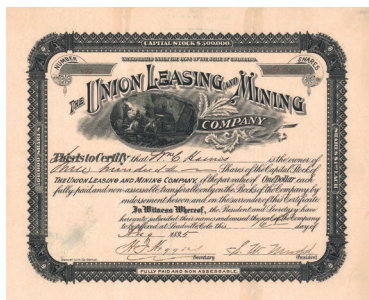 CAPITAL STOCK $500,000
INCORPORATED UNDER THE LAWS OF THE STATE OF COLORADO
NUMBER
SHARES
THE UNION LEASING AND MINING
COMPANY
This is to Certify that Wm C is the owner of
three hundred Shares of the Capital Stock of
THE UNION LEASING AND MINING COMPANY, of the par value of One Dollar each
fully paid and non-assessable transferable only on the Books of the Company by
endorsement hereon, and on the surrender of this Certificate.
In Witness Whereof, the President and Secretary have
hereunto subscribed their names and caused the seal of the Company
to be affixed, at Leadville, Colo. this day of
Aug 1895
Secretary
President
FULLY PAID AND NON ASSESSABLE.